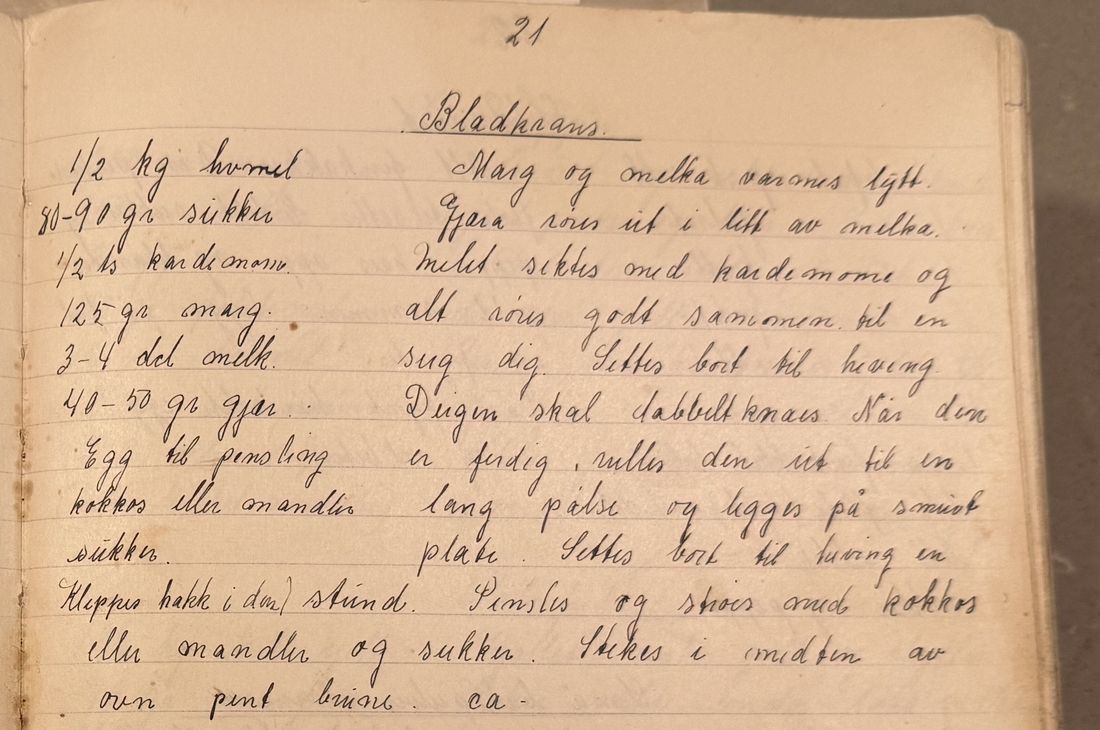 21
Bladkrans.
1/2 kg hvmel
80-90 gr sukker
1/2 ts kardemom.
125 gr marg.
3-4 del melk.
40-50 gr gjær.
Egg til pensling
kokkos eller mandler
sukker.
Marg og melka varmes lytt.
Gjæra røres ut i litt av melka.
Melet siktes med kardemome og
alt røres godt sammen til en
seig dig. Settes bort til heving
Deigen skal dobbeltknaes Når den
er ferdig, rulles den ut til en
lang pølse og legges på smurt
plate. Settes bort til heving en
Kleppes hakk i den) stund. Pensles og strøes med kokkos
eller mandler og sukker. Stekes i midten av
ovn pent brune. ca -